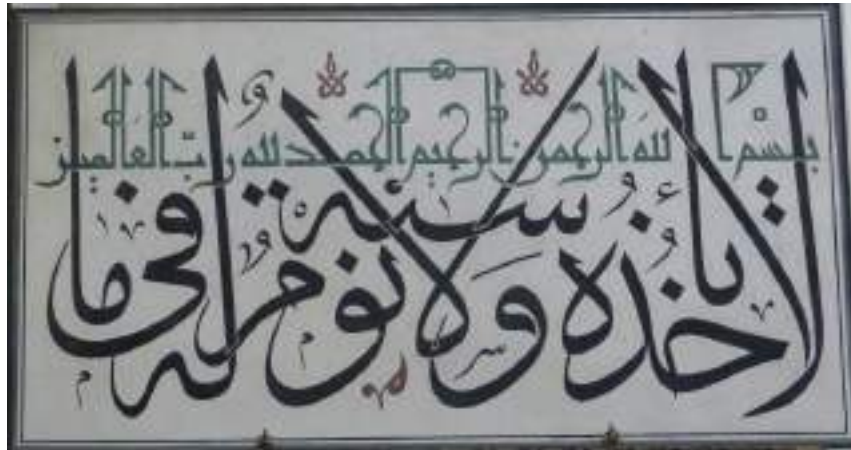 بسم الله الرحمن الرحيم الحمد لله رب العالمين
لا تأخذه سنة ولا نوم له ما في